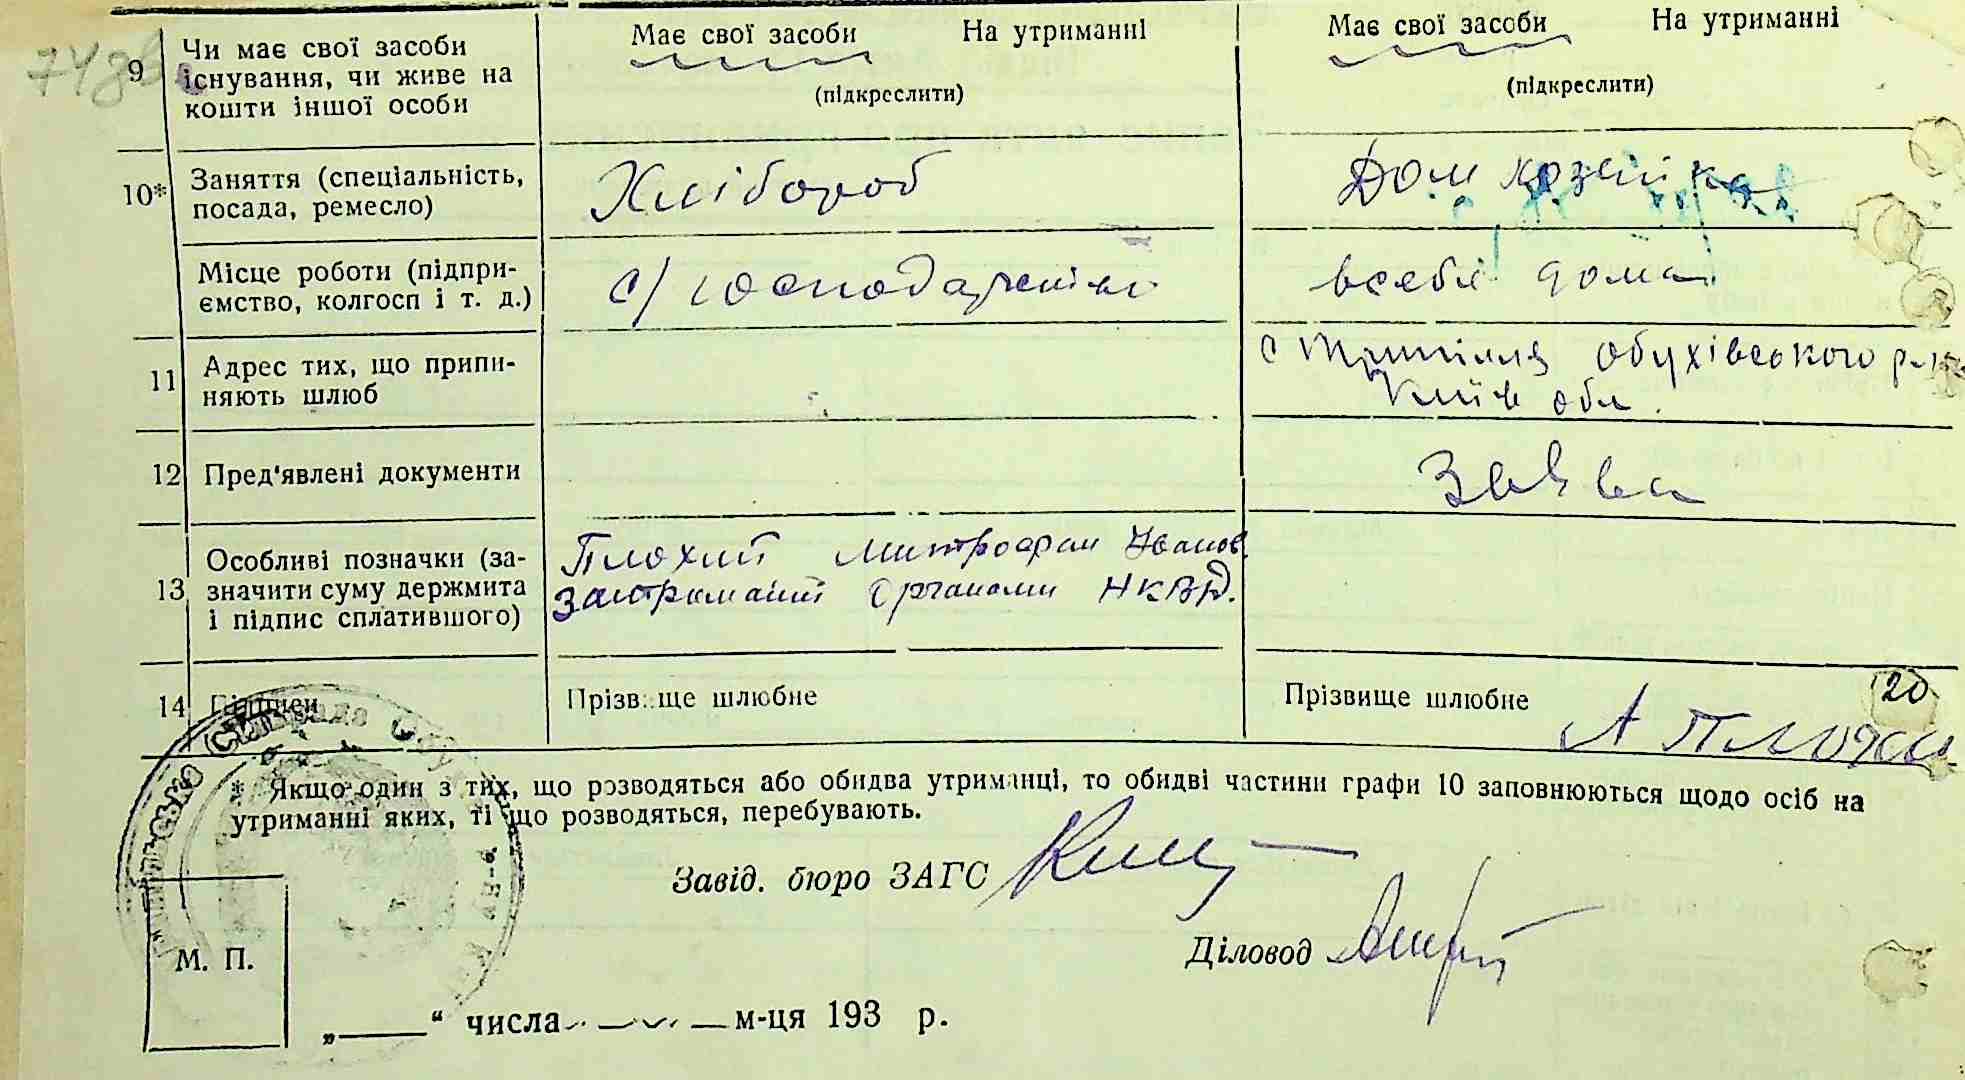 74зв
9 Чи має свої засоби існування, чи живе на кошти іншої особи
Має свої засоби На утриманні
(підкреслити)
Має свої засоби На утриманні
(підкреслити)
10* Заняття (спеціальність, посада, ремесло)
Хлібороб
Дом хозяйка
Місце роботи (підприємство, колгосп і т. д.)
с/господарстві
всебе дома
11 Адрес тих, що припиняють шлюб
с Трипілля Обухівського р-н
Київ обл.
12 Пред'явлені документи
Заява
13 Особливі позначки (зазначити суму держмита і підпис сплатившого)
Плохий Митрофан Иванов.
Затриманий Органами НКВД.
14 Підписи
Прізвище шлюбне
Прізвище шлюбне
20
* Якщо один з тих, що розводяться або обидва утриманці, то обидві частини графи 10 заповнюються щодо осіб на
утриманні яких, ті що розводяться, перебувають.
Завід. бюро ЗАГС
Діловод
М. П.
„ “ числа м-ця 193 р.